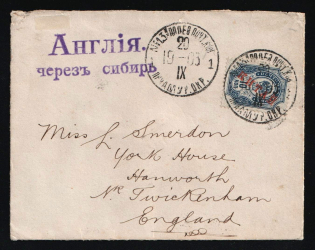 Англія.
черезъ сибирь
20
19-05
IX
1
Miss L. Smerdon
York House
Hanworth
Nr Twickenham
England